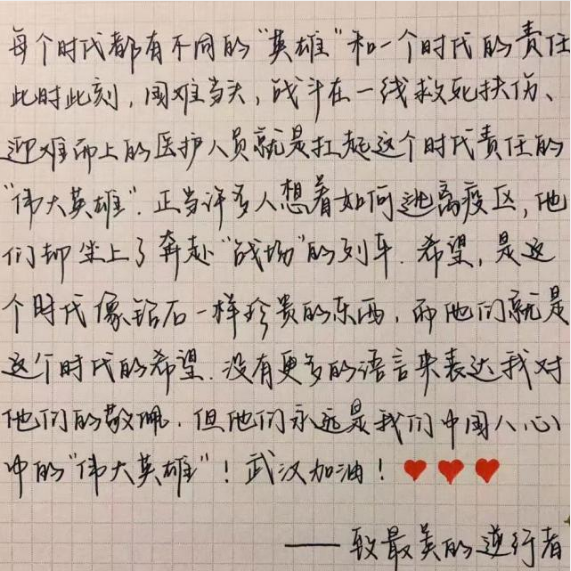 每个时代都有不同的“英雄”和一个时代的责任
此时此刻，国难当头，战斗在一线救死扶伤、
迎难而上的医护人员就是扛起这个时代责任的
“伟大英雄”. 正当许多人想着如何逃离疫区，他
们却坐上了奔赴“战场”的列车. 希望，是这
个时代像钻石一样珍贵的东西，而他们就是
这个时代的希望. 没有更多的语言来表达我对
他们的敬佩. 但他们永远是我们中国人心
中的“伟大英雄”！武汉加油！❤❤❤
——致最美的逆行者